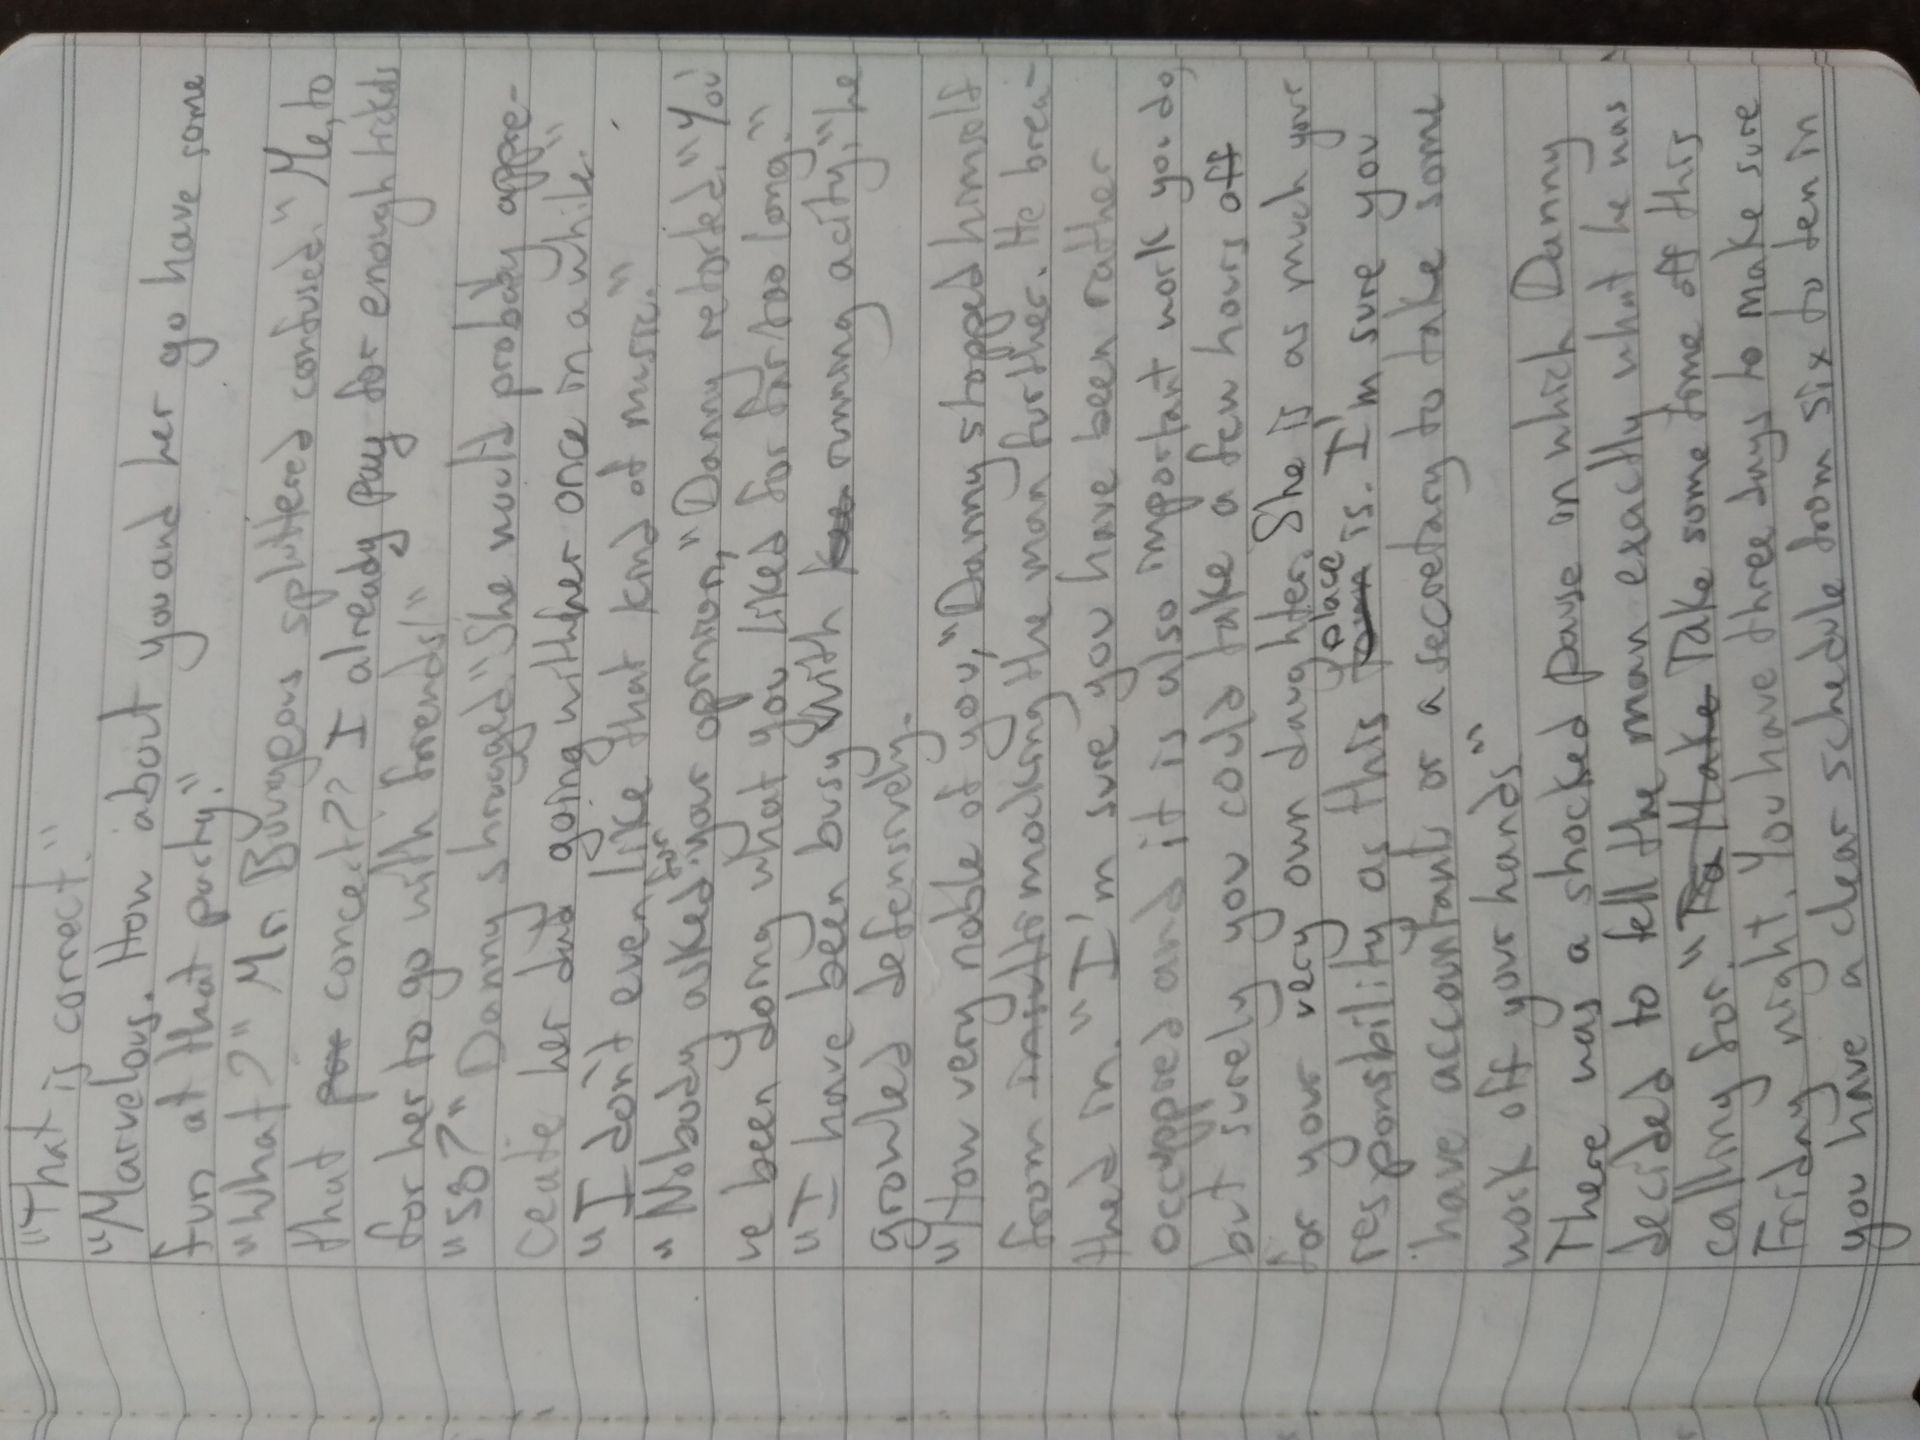 "That is correct."
"Marvelous. How about you and her go have some
fun at that party."
"What?" Mr Bourgeois spluttered confused. "Me, to
that concert?? I already pay for enough tickets
for her to go with friends!"
"So?" Danny shrugged. "She would probably appre-
ciate her dad going with her once in a while."
"I don't even like that kind of music."
"Nobody asked for your opinion," Danny retorted. "You
've been doing what you liked for far too long."
"I have been busy with running a city," he
growled defensively.
"How very noble of you," Danny stopped himself
from mocking the man further. He brea-
thed in. "I'm sure you have been rather
occuppied and it is also important work you do,
but surely you could take a few hours off
for your very own daughter. She is as much your
responsibility as this place is. I'm sure you
have accountants or a secretary to take some
work off your hands"
There was a shocked pause in which Danny
decided to tell the man exactly what he was
calling for. "Take some time off this
Friday night. You have three days to make sure
you have a clear schedule from six to ten in